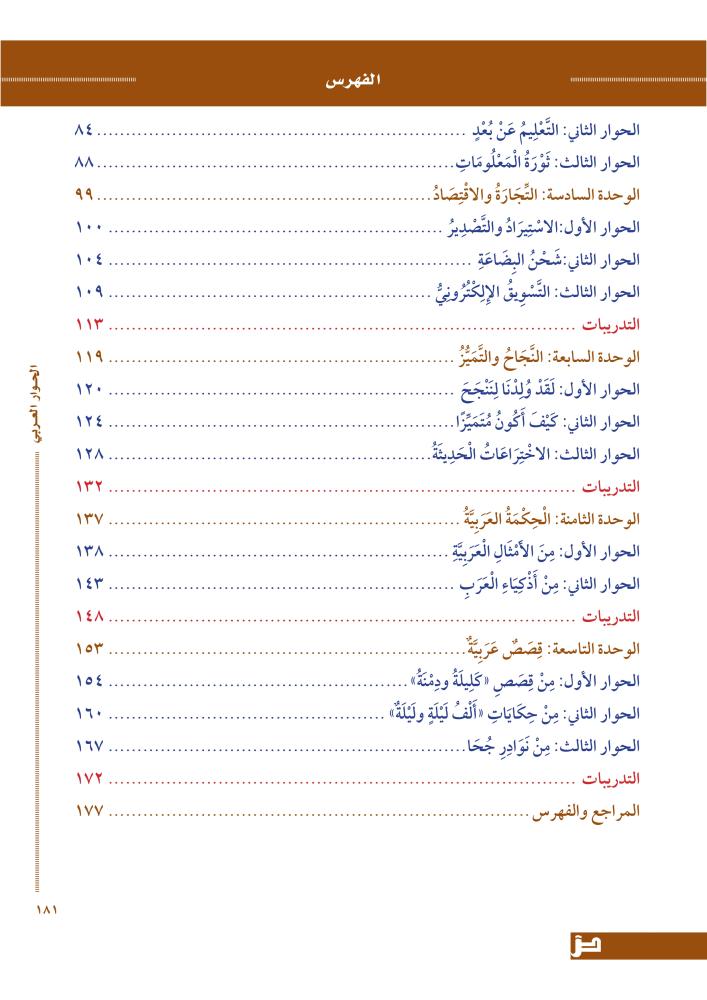 الفهرس
الحوار الثاني: التَّعْلِيمُ عَنْ بُعْدٍ ................................ ٨٤
الحوار الثالث: ثَوْرَةُ الْمَعْلُومَاتِ ................................ ٨٨
الوحدة السادسة: التِّجَارَةُ والاقْتِصَادُ ................................ ٩٩
الحوار الأول:الاسْتِيرَادُ والتَّصْدِيرُ ................................ ١٠٠
الحوار الثاني:شَحْنُ البِضَاعَةِ ................................ ١٠٤
الحوار الثالث: التَّسْوِيقُ الإِلِكْتُرُونِيُّ ................................ ١٠٩
التدريبات ................................ ١١٣
الوحدة السابعة: النَّجَاحُ والتَّمَيُّزُ ................................ ١١٩
الحوار الأول: لَقَدْ وُلِدْنَا لِنَنْجَحَ ................................ ١٢٠
الحوار الثاني: كَيْفَ أَكُونُ مُتَمَيِّزًا ................................ ١٢٤
الحوار الثالث: الاخْتِرَاعَاتُ الْحَدِيثَةُ ................................ ١٢٨
التدريبات ................................ ١٣٢
الوحدة الثامنة: الْحِكْمَةُ العَرَبِيَّةُ ................................ ١٣٧
الحوار الأول: مِنَ الأَمْثَالِ الْعَرَبِيَّةِ ................................ ١٣٨
الحوار الثاني: مِنْ أَذْكِيَاءِ الْعَرَبِ ................................ ١٤٣
التدريبات ................................ ١٤٨
الوحدة التاسعة: قِصَصٌ عَرَبِيَّةٌ ................................ ١٥٣
الحوار الأول: مِنْ قِصَصِ «كَلِيلَةُ ودِمْنَةُ» ................................ ١٥٤
الحوار الثاني: مِنْ حِكَايَاتِ «أَلْفُ لَيْلَةٍ ولَيْلَةٌ» ................................ ١٦٠
الحوار الثالث: مِنْ نَوَادِرِ جُحَا ................................ ١٦٧
التدريبات ................................ ١٧٢
المراجع والفهرس ................................ ١٧٧
الحوار العربي
١٨١